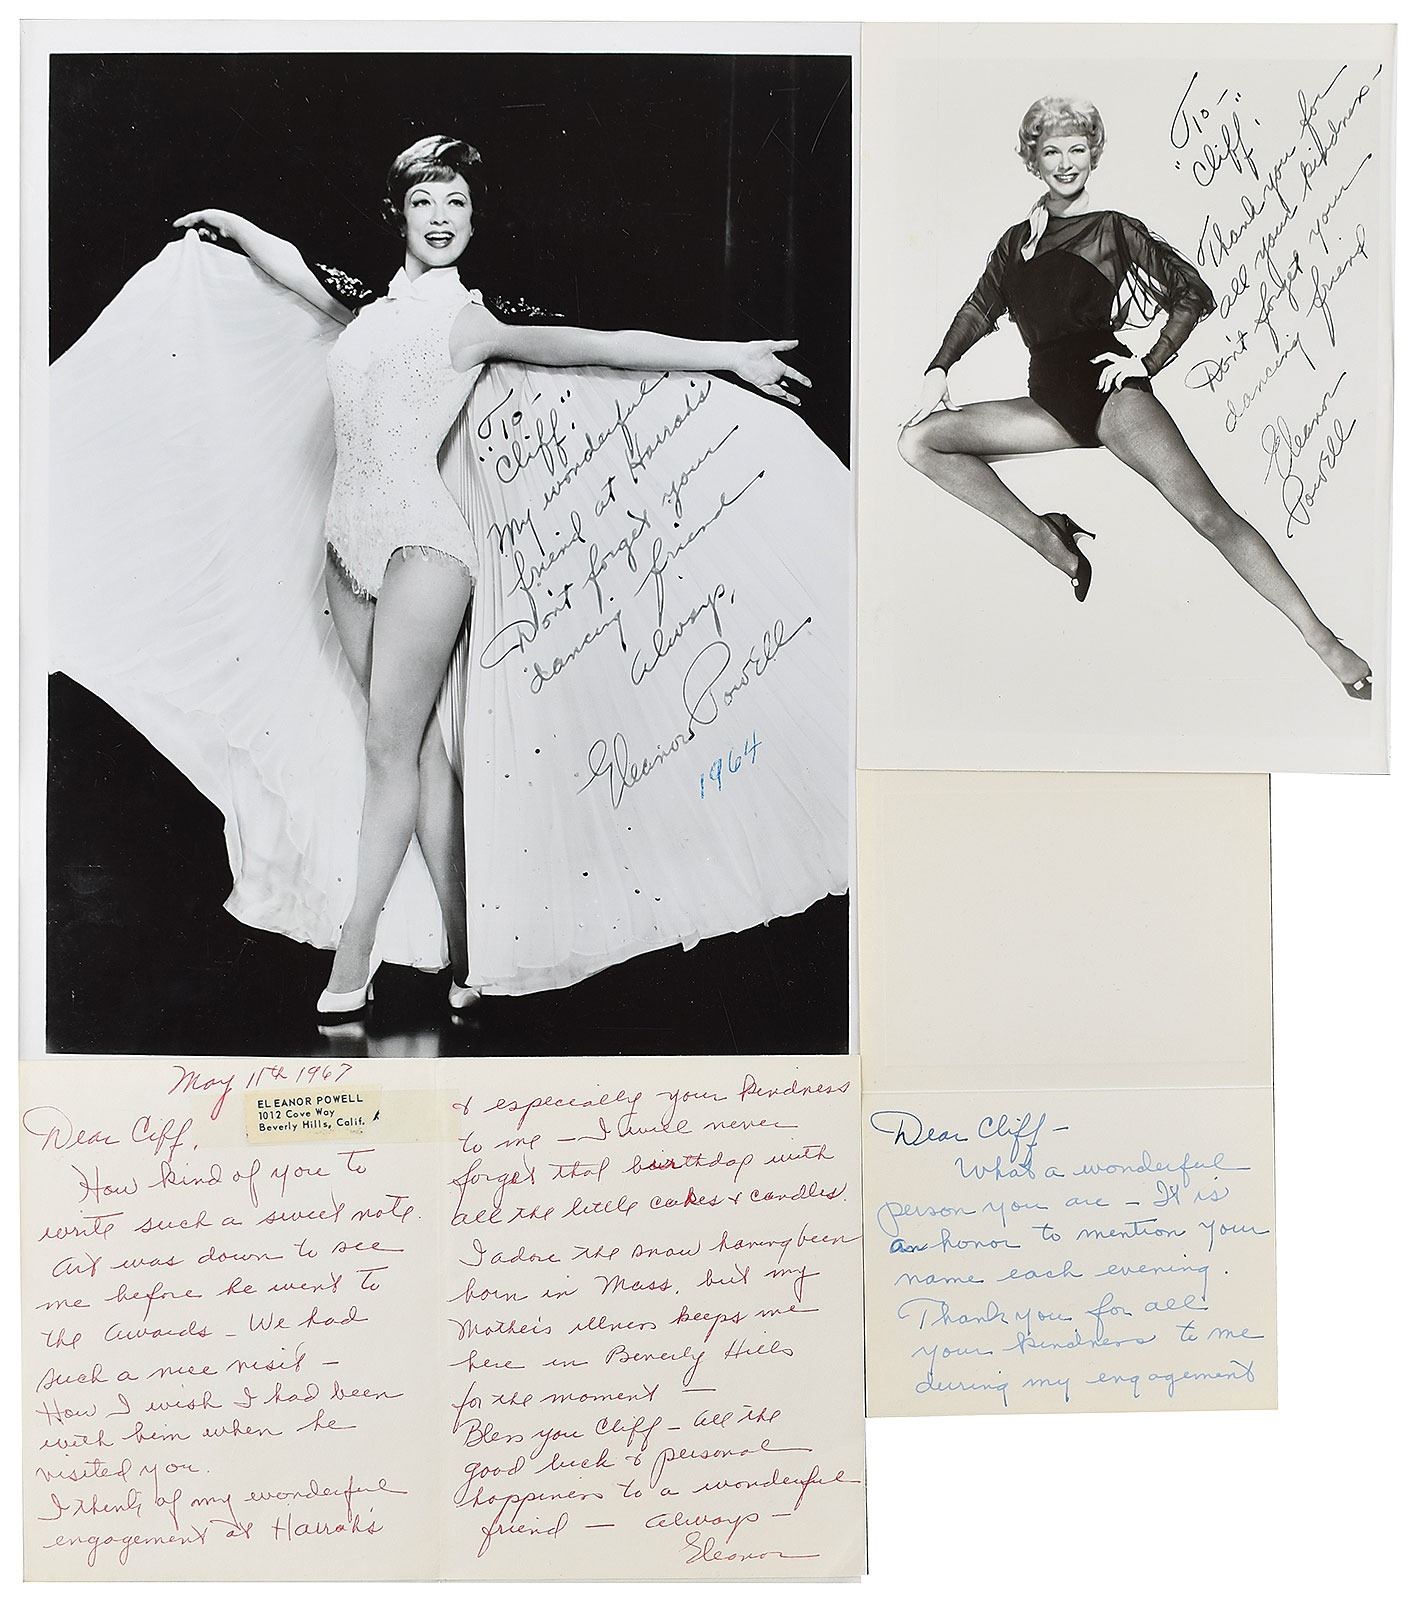 To-
"Cliff."
My wonderful
friend at Harrah's
Don't forget your
dancing friend
Always,
Eleanor Powell
1964
To-
"Cliff."
Thank you for
all your kindness-
Don't forget your
dancing friend
Eleanor
Powell
May 11th 1967
ELEANOR POWELL
1012 Cove Way
Beverly Hills, Calif.
Dear Cliff,
How kind of you to
write such a sweet note.
Art was down to see
me before he went to
the Awards - We had
such a nice visit -
How I wish I had been
with him when he
visited you.
I think of my wonderful
engagement at Harrah's
& especially your kindness
to me - I will never
forget that birthday with
all the little cakes & candles.
I adore the snow having been
born in Mass. but my
Mother's illness keeps me
here in Beverly Hills
for the moment -
Bless you Cliff - all the
good luck & personal
happiness to a wonderful
friend - always -
Eleanor
Dear Cliff -
What a wonderful
person you are - It is
an honor to mention your
name each evening.
Thank you for all
your kindness to me
during my engagement